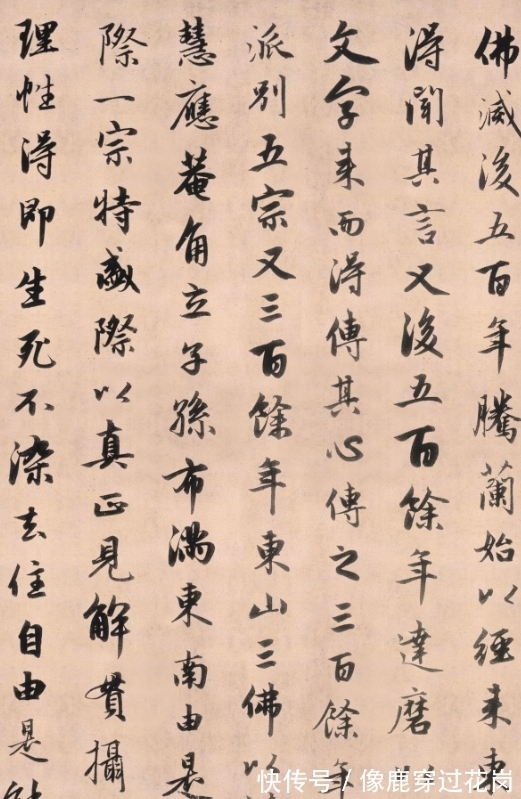 佛滅後五百年騰蘭始以經來東
得聞其言又後五百餘年達磨以
文字來而得傳其心傳之三百餘年
派别五宗又三百餘年東山三佛以
慧應菴角立子孫布滿東南由是
際一宗特盛際以真正見解貫攝
理性得即生死不染去住自由是
快传号/像鹿穿过花岗